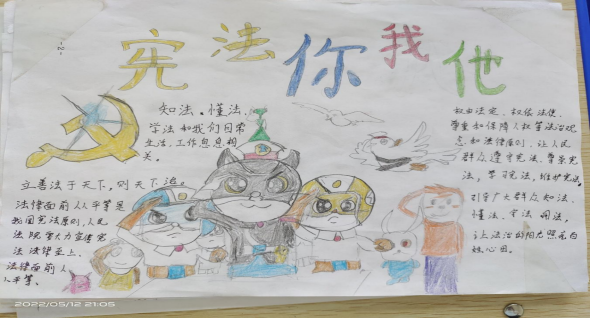 宪法你我他
知法、懂法、
学法和我们日常
生活、工作息息相
关。
立善法于天下,则天下治。
法律面前人人平等是
我国宪法原则,人民
法院
宪
法 法
至上
法律面前人
人平等。
权由法定、权依法使、
尊重和保障人权等法治观
念和法律原则,让人民
群众遵守宪法、尊崇宪
法,学习宪法,维护宪法。
引导广大群众知法、
懂法、守法、用法,
让法治的阳光照亮百
姓心田。
2022/05/12 21:05